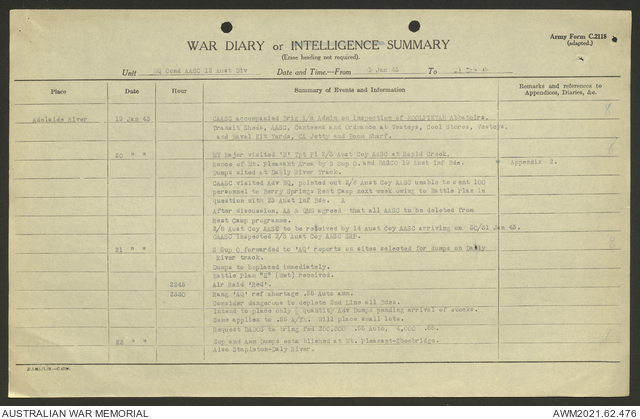 Army Form C.2118
(adapted.)
WAR DIARY or INTELLIGENCE SUMMARY
(Erase heading not required).
Unit HQ Comd AASC 12 Aust Div Date and Time.—From 1 Jan 43 To
Place Date Hour Summary of Events and Information Remarks and references to
Appendices, Diaries, &c.
Adelaide River 19 Jan 43 CAASC accompanied Brig i/c Admin on inspection of Abbatoirs.
Transit Sheds, AASC, Canteens and Ordnance at Vesteys, Cool Stores, Vesteys,
and Naval Oil Yards, Jetty and Boom Wharf.
20 " " MT Major visited "E" Tpt Pl 2/8 Aust Coy AASC at Rapid Creek.
Recce of Mt. Pleasant Area by S Sup O. and 19 Aust Inf Bde. Appendix 2.
Dumps sited at Daly River Track.
CAASC visited Adv HQ, pointed out 2/8 Aust Coy AASC unable to sent 100
personnel to Berry Springs Rest Camp next week owing to Battle Plan in
question with 23 Aust Inf Bde. A
After discussion, AA & QMG agreed that all AASC to be deleted from
Rest Camp programme.
2/8 Aust Coy AASC to be relieved by 14 Aust Coy AASC arriving on 30/31 Jan 43.
CAASC Inspected 2/3 Aust Coy AASC
21 " " S Sup O forwarded to 'AQ' reports on sites selected for dumps on Daly
River track.
Dumps to be placed immediately.
Battle Plan "Z" (Wet) received.
2245 Air Raid 'Red'.
2330 Rang 'AQ' ref shortage .55 Auto amn.
Consider dangerous to deplete 2nd Line all Bdes.
Intend to place only ½ Quantity Adv Dumps pending arrival of
Same applied to .55 A/Tk. Will place small lots.
Request DADOS to bring fwd 200,000 .55 Auto, 4,000 .55.
22 " " Sup and Amn Dumps established at Mt. Pleasant-Stowbridge.
Also Stapleton-Daly River.
AUSTRALIAN WAR MEMORIAL AWM2021.62.476